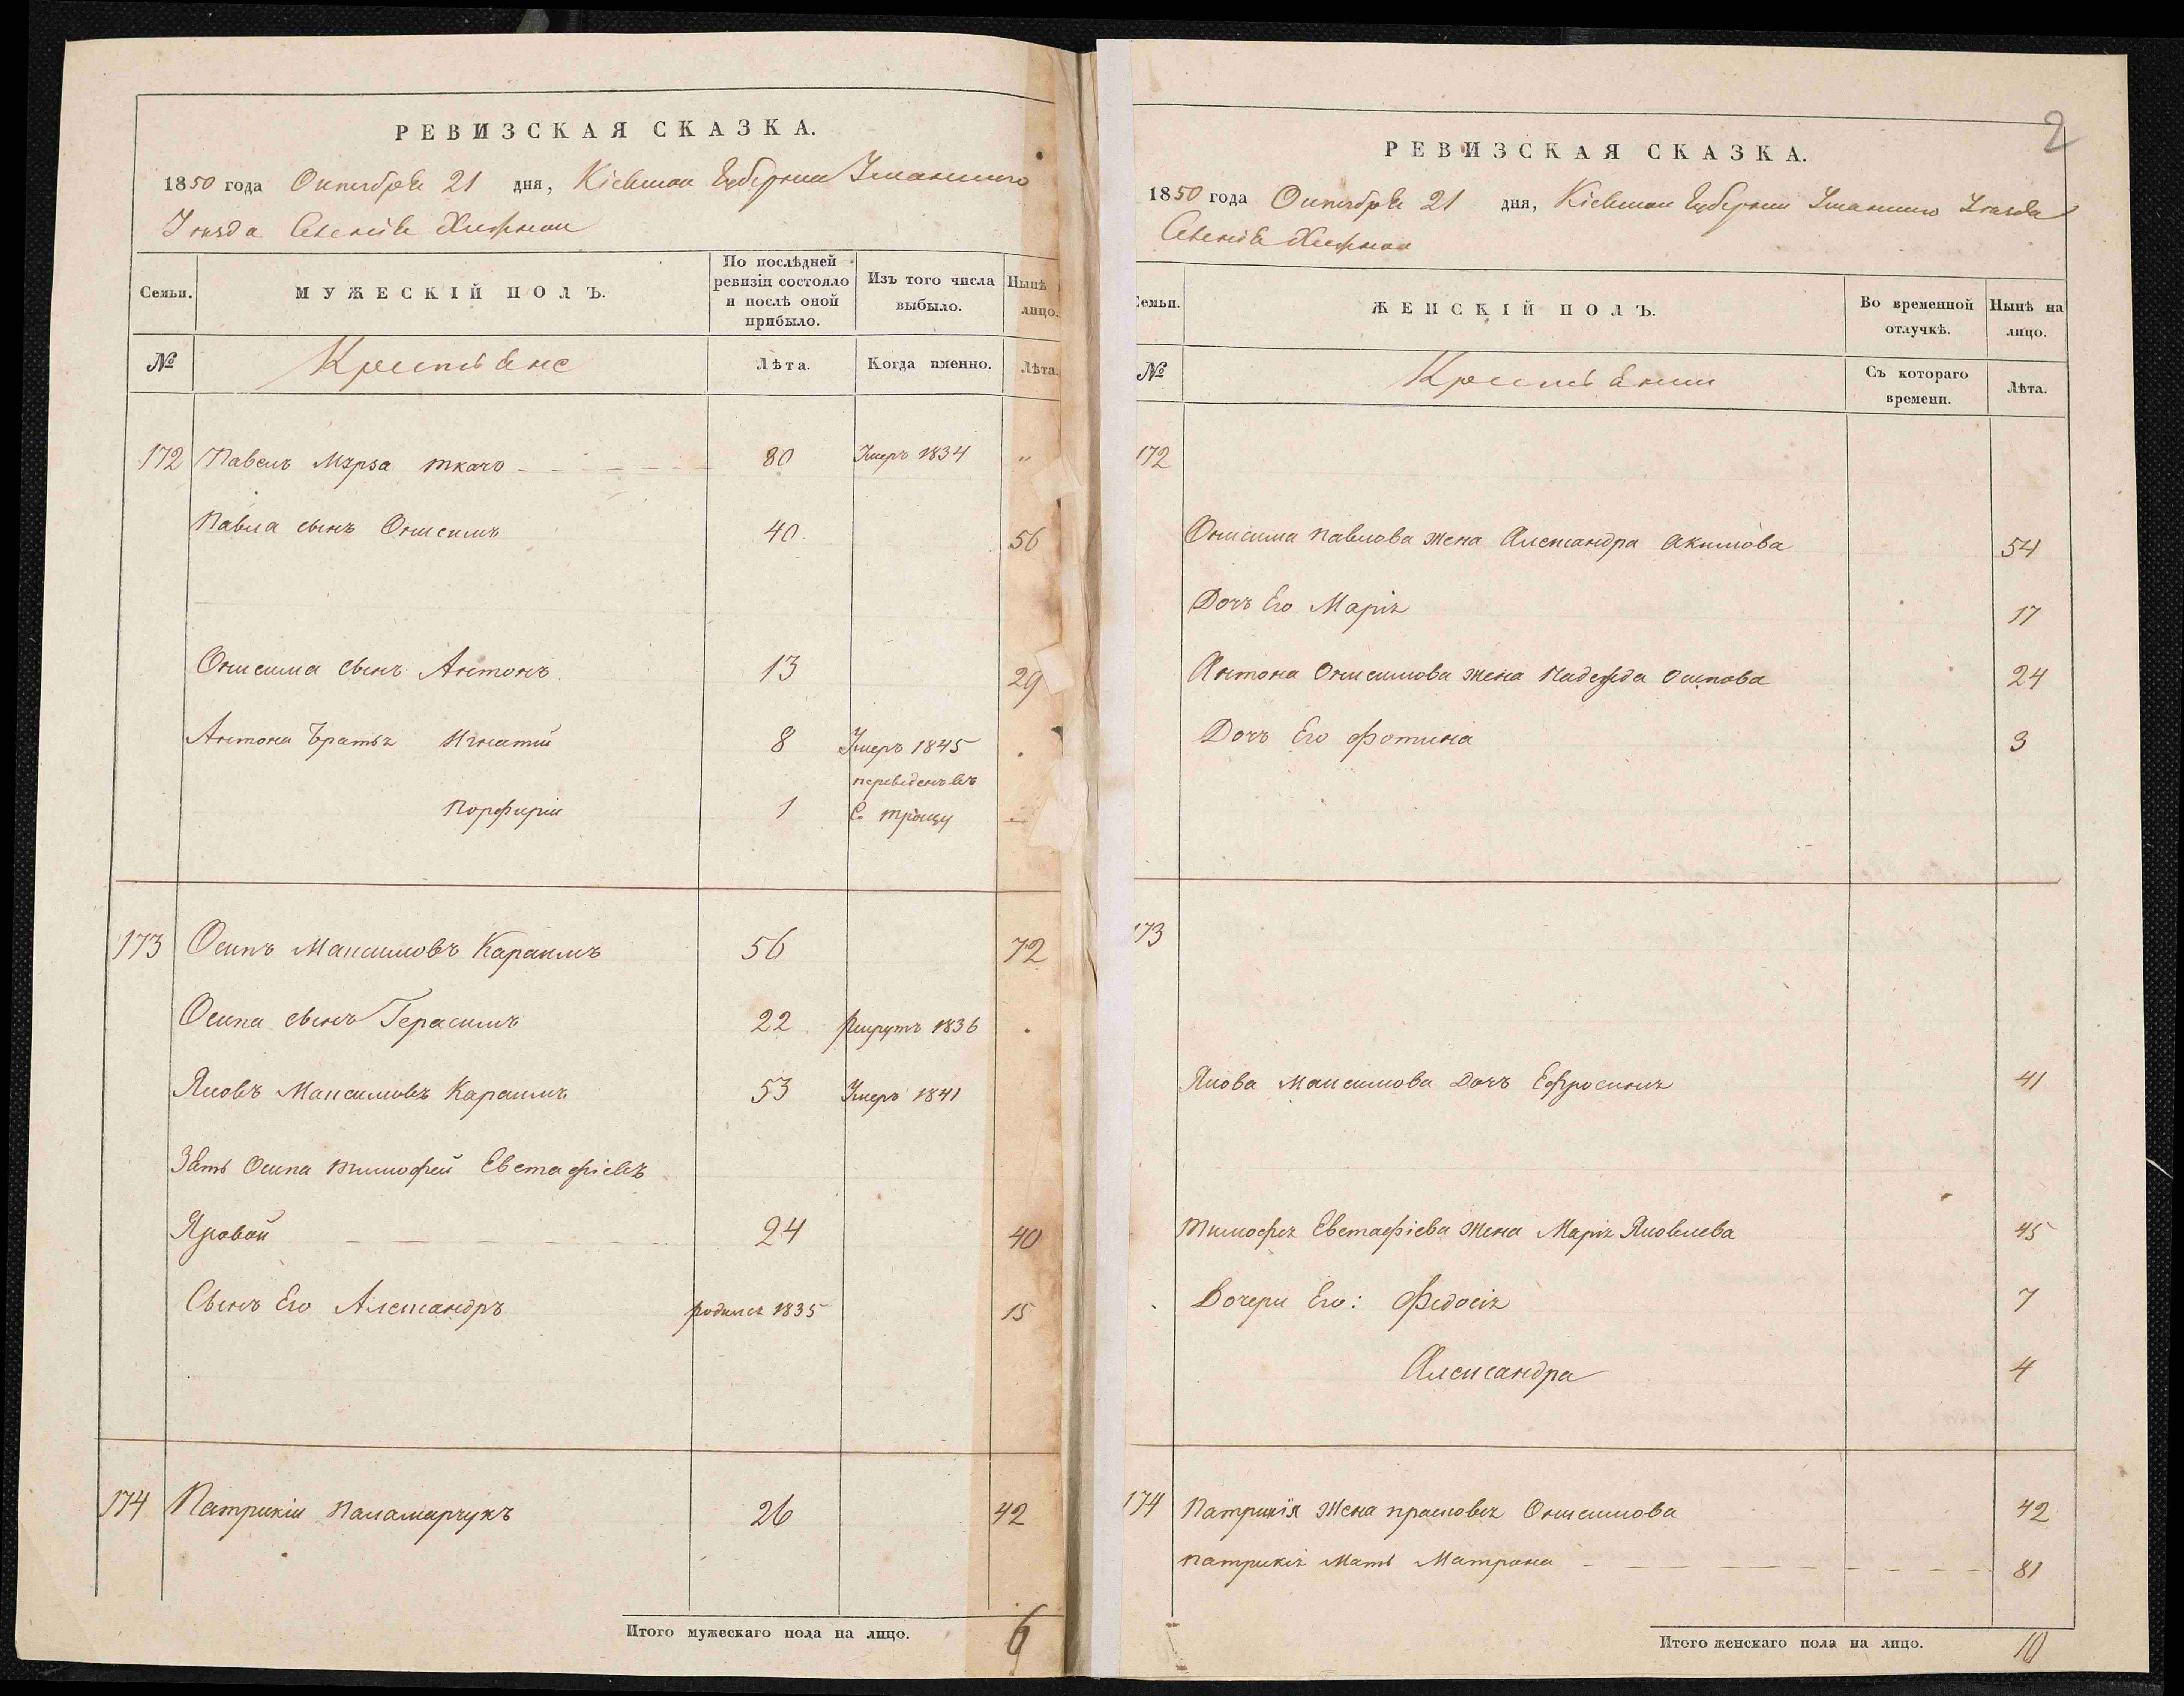 РЕВИЗСКАЯ СКАЗКА.
1850 года Октября 21 дня, Кіевской Губерніи Уманскаго
Уѣзда Селенія
МУЖЕСКІЙ ПОЛЪ.
Семьи.
По послѣдней ревизіи состояло и послѣ оной прибыло.
Изъ того числа выбыло.
Нынѣ лицо.
№ Крестьяне Лѣта. Когда именно. Лѣта.
172 Павелъ ткачъ 80 Умеръ 1834 "
Павла сынъ Онисимъ 40 56
Онисима сынъ Антонъ 13 29
Антона братья Игнатій 8 Умеръ 1845
переведенъ въ
Порфирій 1 С. Троицу
173 Осипъ Максимовъ 56 72
Осипа сынъ Герасимъ 22 рекрутъ 1836
Яковъ Максимовъ 53 Умеръ 1841
Зять Осипа Тимофей Евстафіевъ
Яровой 24 40
Сынъ Его Александръ родился 1835 15
174 Патрикій Паламарчукъ 26 42
Итого мужескаго пола на лицо. 6
2
РЕВИЗСКАЯ СКАЗКА.
1850 года Октября 21 дня, Кіевской Губерніи Уманскаго Уѣзда
Селенія
Семьи.
ЖЕНСКІЙ ПОЛЪ.
Во временной отлучкѣ.
Нынѣ на лицо.
№ Крестьянки Съ котораго времени. Лѣта.
172
Онисима Павлова жена Александра Акимова 54
Дочъ Его Марія 17
Антона Онисимова жена Надежда Осипова 24
Дочъ Его Фотина 3
173
Якова Максимова Дочъ Ефросинія 41
Тимофея Евстафіева жена Марія Яковлева 45
Дочери Его: Федосія 7
Александра 4
174 Патрикія Жена Онисимова 42
Патрикія Мать Матрона 81
Итого женскаго пола на лицо. 10